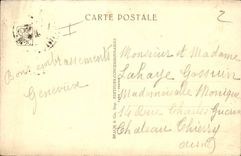 CARTE POSTALE
2
Bons embrassements
Geneviève
Monsieur et Madame
Lahaye Gossuin
Mademoiselle Monique
14 Rue Charles Guérin
Château Thierry
Aisne